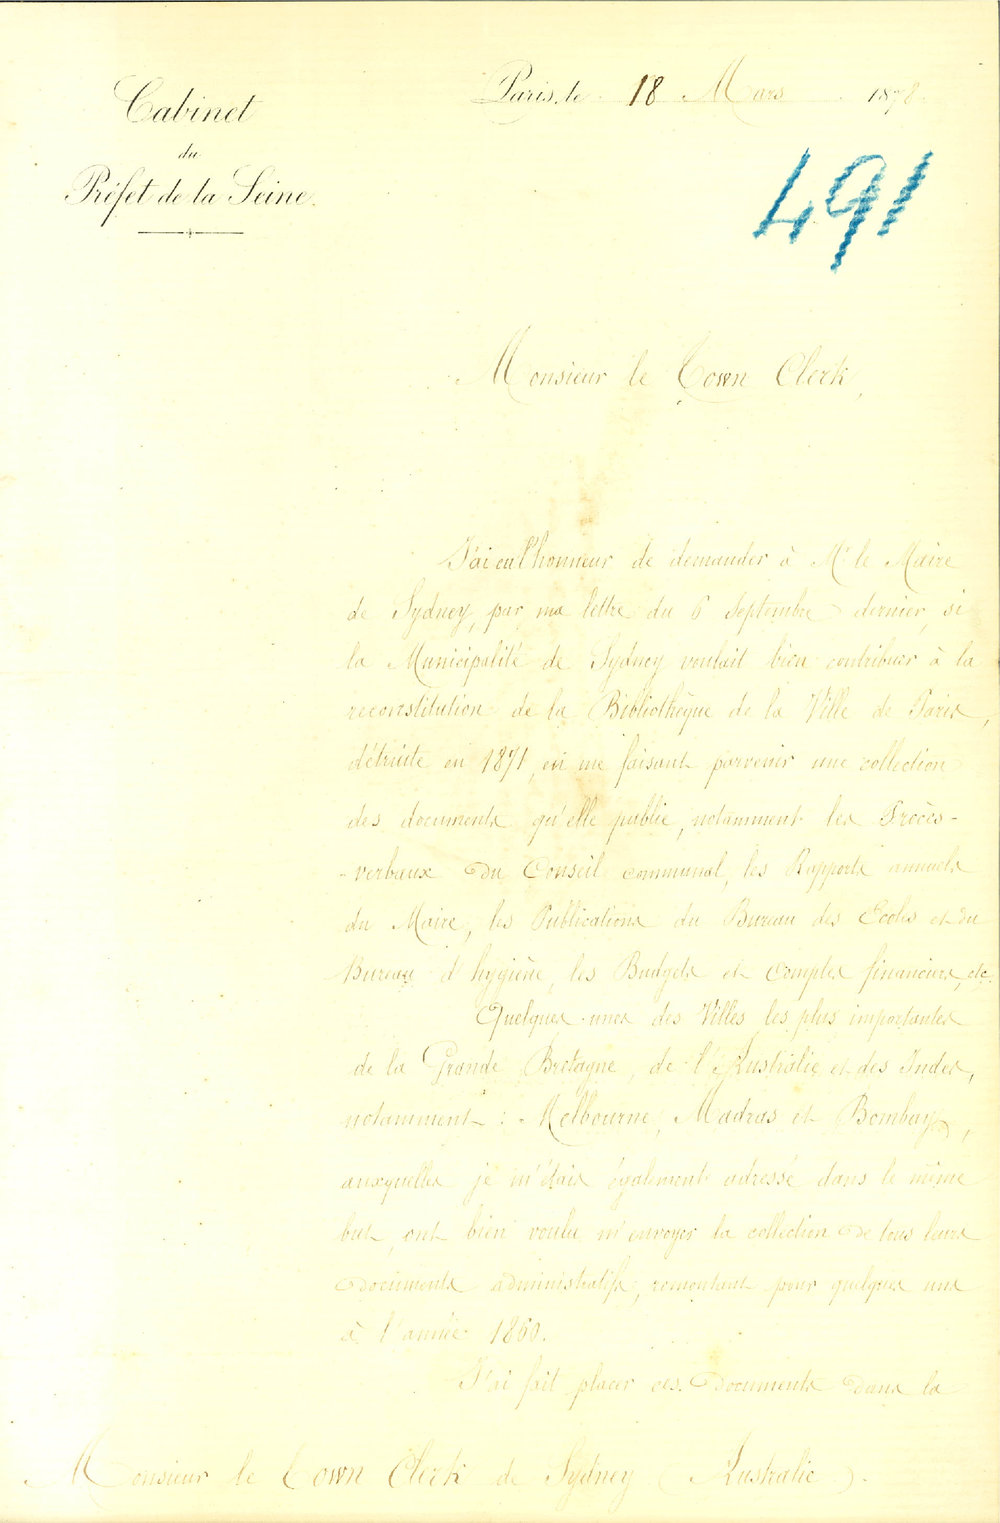 Cabinet
du
Préfet de la Seine.
Paris, le 18 Mars 1878.
491
Monsieur le Town Clerk,
J'ai eu l'honneur de demander à Mr le Maire
de Sydney, par ma lettre du 6 Septembre dernier, si
la Municipalité de Sydney voulait bien contribuer à la
reconstitution de la Bibliothèque de la Ville de Paris,
détruite en 1871, en me faisant parvenir une collection
des documents qu'elle publie, notamment les Procès-
-verbaux du Conseil communal, les Rapports annuels
du Maire, les Publications du Bureau des Ecoles et du
Bureau d'hygiène, les Budgets et comptes financiers, etc.
Quelques-unes des Villes les plus importantes
de la Grande Bretagne, de l'Australie et des Indes,
notamment : Melbourne, Madras et Bombay,
auxquelles je m'étais également adressé dans le même
but, ont bien voulu m'envoyer la collection de tous leurs
documents administratifs, remontant pour quelques uns
à l'année 1860.
J'ai fait placer ces documents dans la
Monsieur le Town Clerk de Sydney (Australie).